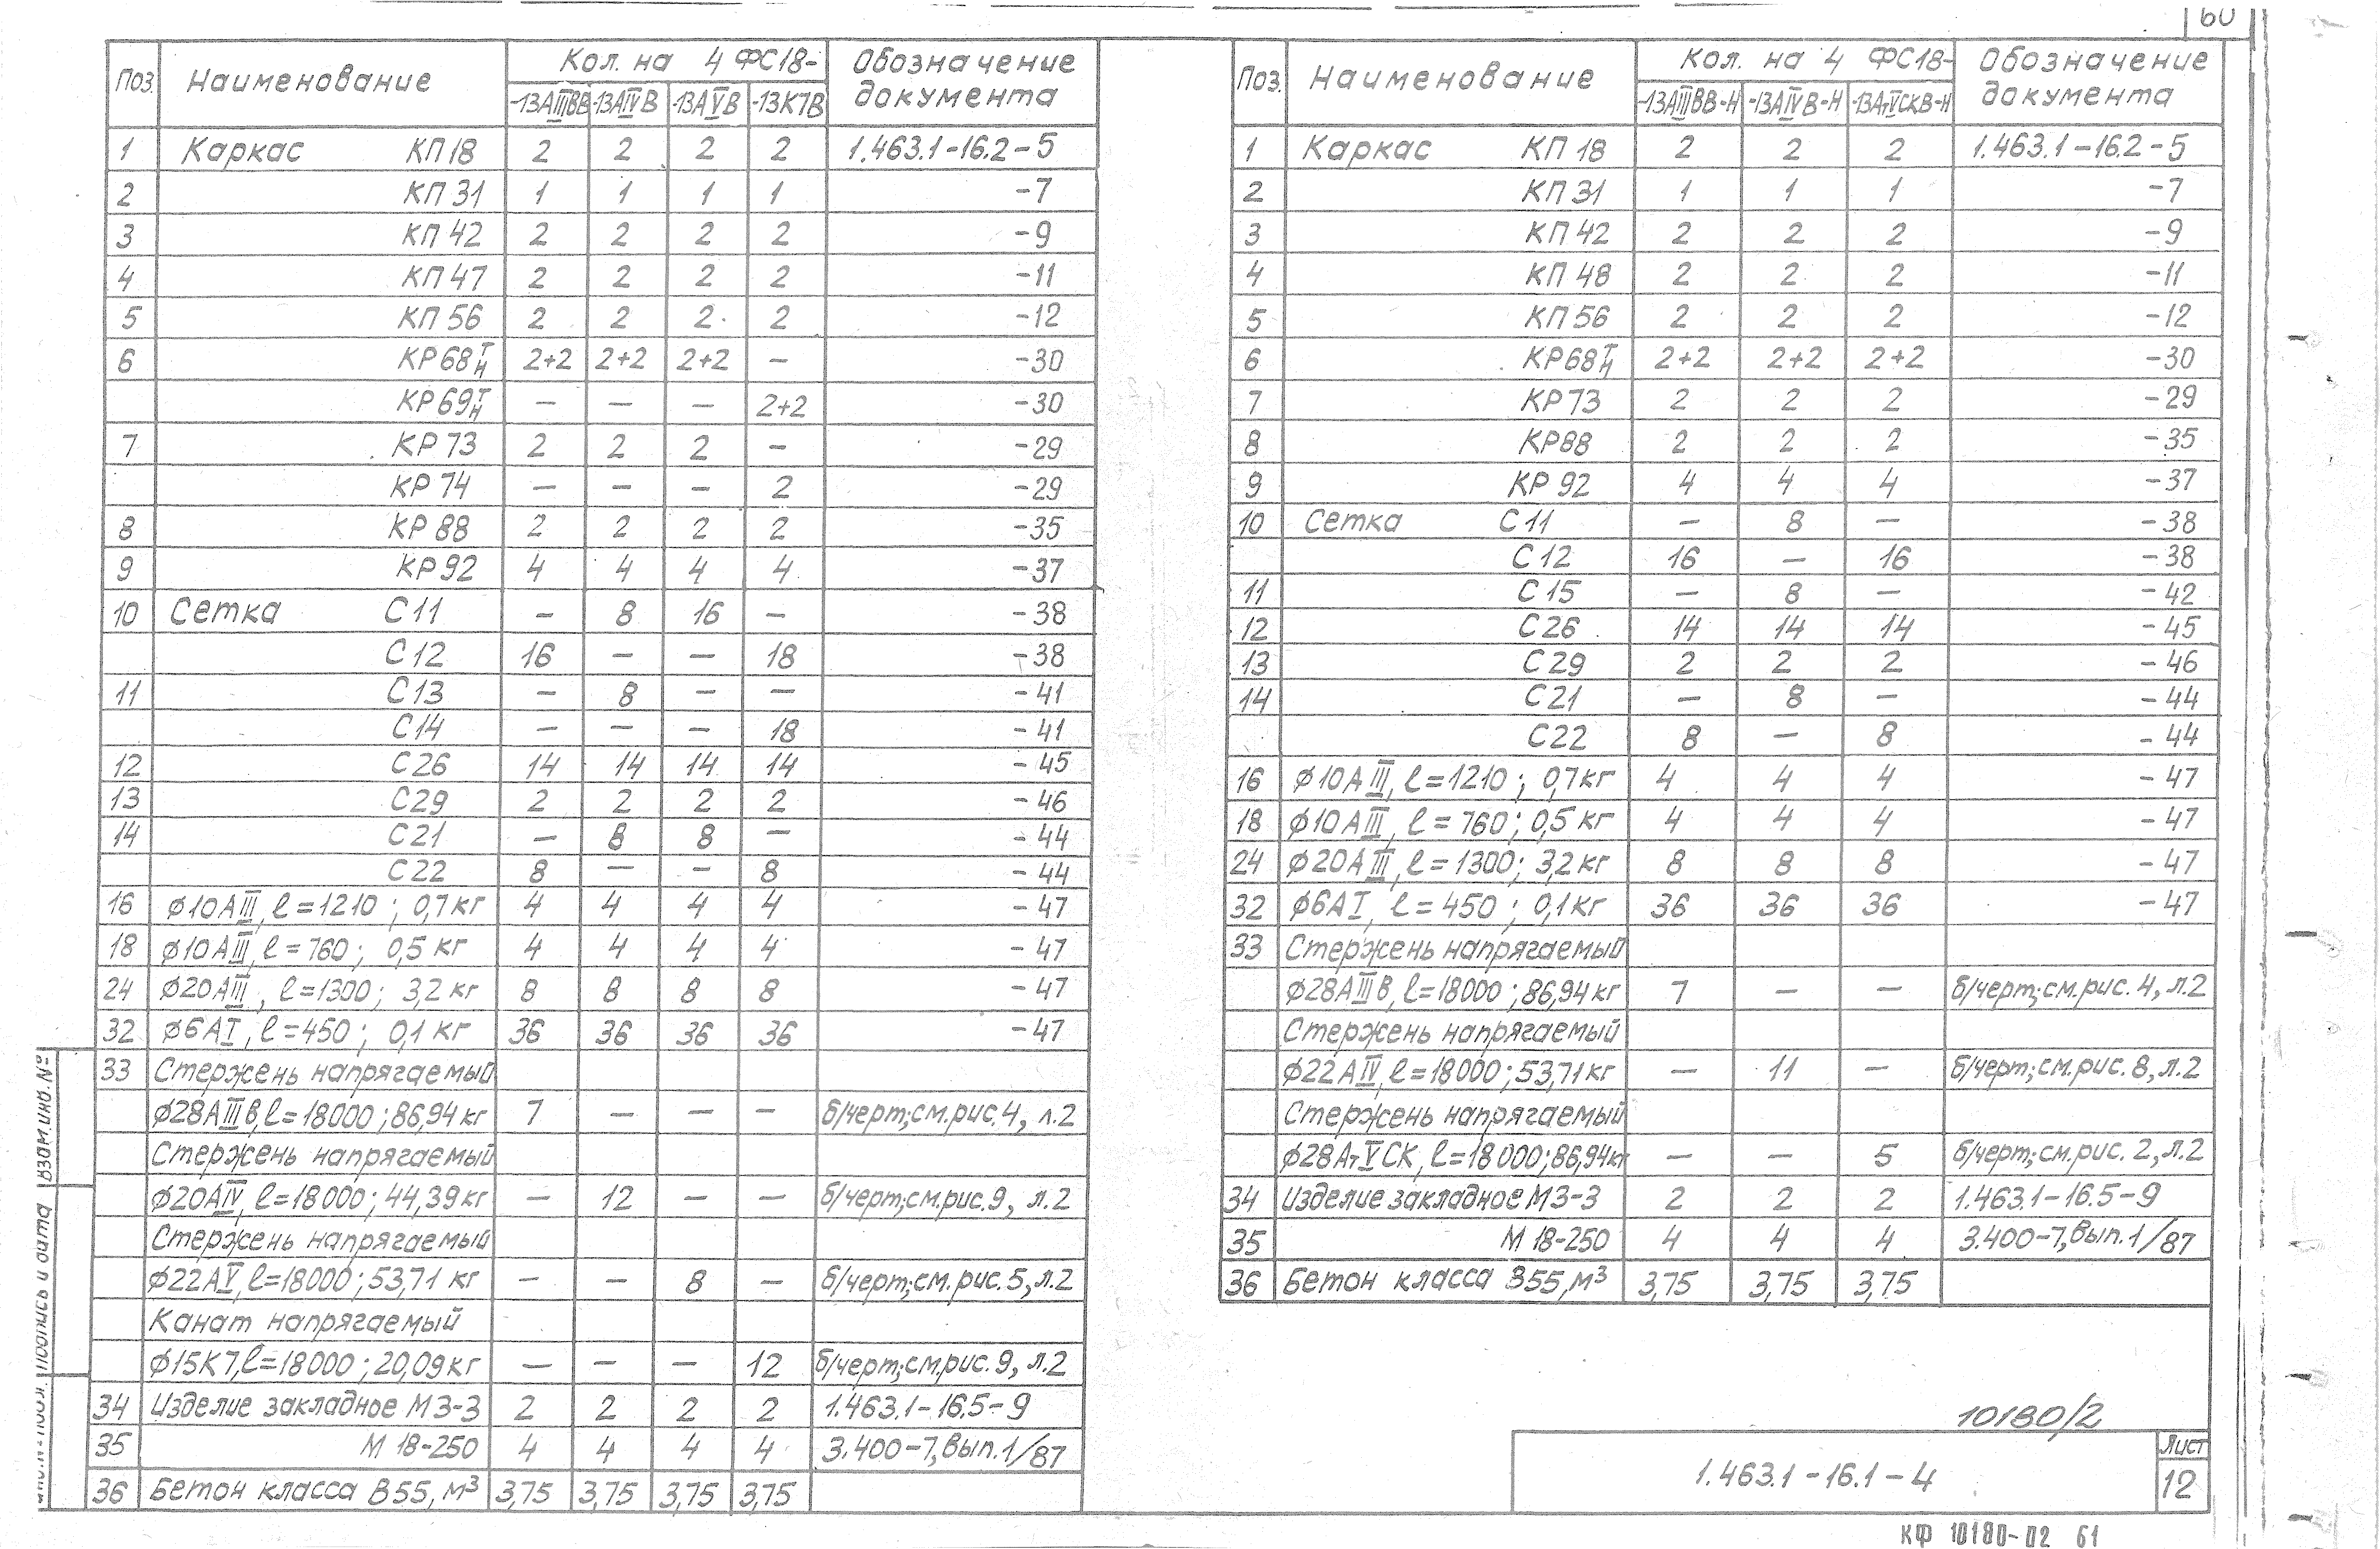 60
Поз. Наименование Кол. на 4 ФС18- Обозначение документа
-13АIIIВВ -13АIVВ -13АVВ -13К7В
1 Каркас КП18 2 2 2 2 1.463.1-16.2-5
2 КП31 1 1 1 1 -7
3 КП42 2 2 2 2 -9
4 КП47 2 2 2 2 -11
5 КП56 2 2 2 2 -12
6 КР68Т/Н 2+2 2+2 2+2 — -30
КР69Т/Н — — — 2+2 -30
7 КР73 2 2 2 — -29
КР74 — — — 2 -29
8 КР88 2 2 2 2 -35
9 КР92 4 4 4 4 -37
10 Сетка С11 — 8 16 — -38
С12 16 — — 18 -38
11 С13 — 8 — — -41
С14 — — — 18 -41
12 С26 14 14 14 14 -45
13 С29 2 2 2 2 -46
14 С21 — 8 8 — -44
С22 8 — — 8 -44
16 ϕ10АIII, ℓ=1210; 0,7кг 4 4 4 4 -47
18 ϕ10АIII, ℓ=760; 0,5 кг 4 4 4 4 -47
24 ϕ20АIII, ℓ=1300; 3,2 кг 8 8 8 8 -47
32 ϕ6АI, ℓ=450; 0,1 кг 36 36 36 36 -47
33 Стержень напрягаемый
ϕ28АIIIВ, ℓ=18000; 86,94 кг 7 — — — б/черт; см.рис.4, л.2
Стержень напрягаемый
ϕ20АIV, ℓ=18000; 44,39кг — 12 — — б/черт; см.рис.9, л.2
Стержень напрягаемый
ϕ22АV, ℓ=18000; 53,71 кг — — 8 — б/черт; см.рис.5, л.2
Канат напрягаемый
ϕ15К7, ℓ=18000; 20,09кг — — — 12 б/черт; см.рис.9, л.2
34 Изделие закладное МЗ-3 2 2 2 2 1.463.1-16.5-9
35 М 18-250 4 4 4 4 3.400-7, вып.1/87
36 Бетон класса В55, м³ 3,75 3,75 3,75 3,75
Поз. Наименование Кол. на 4 ФС18- Обозначение документа
-13АIIIВВ-Н -13АIVВ-Н -13АтVСКВ-Н
1 Каркас КП18 2 2 2 1.463.1-16.2-5
2 КП31 1 1 1 -7
3 КП42 2 2 2 -9
4 КП48 2 2 2 -11
5 КП56 2 2 2 -12
6 КР68Т/Н 2+2 2+2 2+2 -30
7 КР73 2 2 2 -29
8 КР88 2 2 2 -35
9 КР92 4 4 4 -37
10 Сетка С11 — 8 — -38
С12 16 — 16 -38
11 С15 — 8 — -42
12 С26 14 14 14 -45
13 С29 2 2 2 -46
14 С21 — 8 — -44
С22 8 — 8 -44
16 ϕ10АIII, ℓ=1210; 0,7кг 4 4 4 -47
18 ϕ10АIII, ℓ=760; 0,5 кг 4 4 4 -47
24 ϕ20АIII, ℓ=1300; 3,2 кг 8 8 8 -47
32 ϕ6АI, ℓ=450; 0,1 кг 36 36 36 -47
33 Стержень напрягаемый
ϕ28АIIIВ, ℓ=18000; 86,94 кг 7 — — б/черт; см.рис.4, л.2
Стержень напрягаемый
ϕ22АIV, ℓ=18000; 53,71 кг — 11 — б/черт; см.рис.8, л.2
Стержень напрягаемый
ϕ28АтVСК, ℓ=18000; 86,94кг — — 5 б/черт; см.рис.2, л.2
34 Изделие закладное МЗ-3 2 2 2 1.463.1-16.5-9
35 М 18-250 4 4 4 3.400-7, вып.1/87
36 Бетон класса В55, м³ 3,75 3,75 3,75
10180/2
1.463.1-16.1-4
Лист
12
КФ 10180-02 61
Взам.инв.№
Подпись и дата